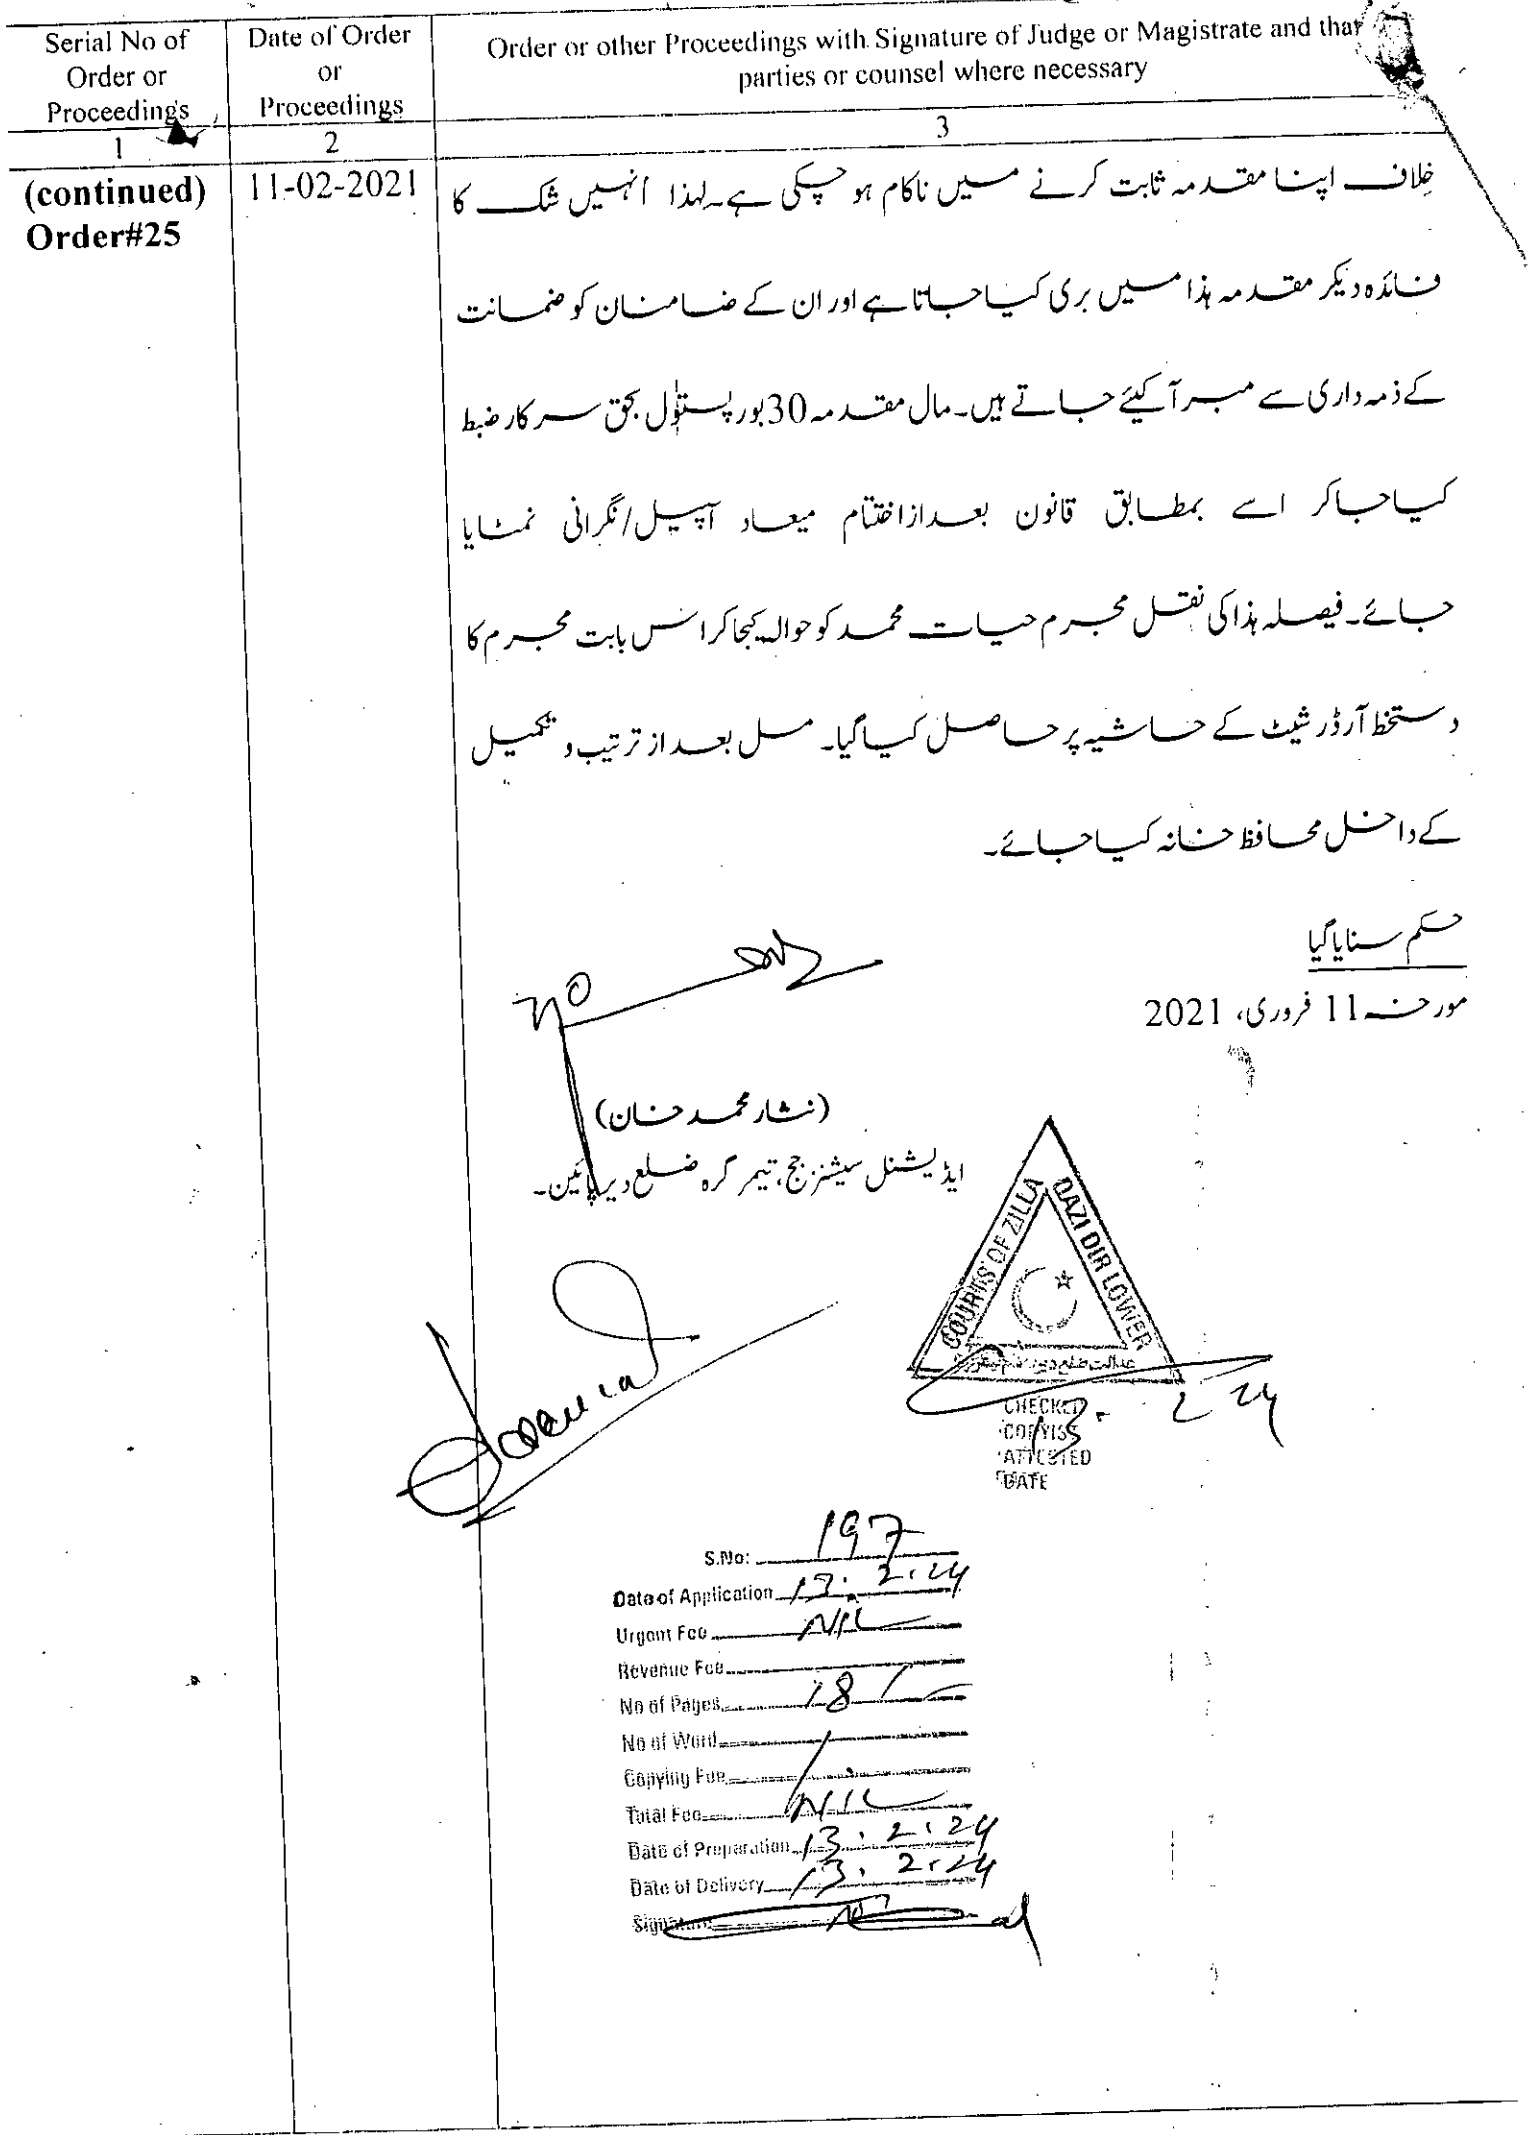 Serial No of
Order or
Proceedings
Date of Order
or
Proceedings
Order or other Proceedings with Signature of Judge or Magistrate and that
parties or counsel where necessary
1
2
3
(continued)
Order#25
11-02-2021
خِلاف اپنا مقدمہ ثابت کرنے میں ناکام ہو چکی ہے۔ لہذا اُنہیں شک کا
فائدہ دیکر مقدمہ ہذا میں بری کیا جاتا ہے اور ان کے ضامنان کو ضمانت
کے ذمہ داری سے مبرآ کیئے جاتے ہیں۔ مال مقدمہ 30 بور پستول بحق سرکار ضبط
کیا جاکر اسے بمطابق قانون بعد از اختتام میعاد آپیل/نگرانی نمٹایا
جائے۔ فیصلہ ہذا کی نقل مجرم حیات محمد کو حوالہ کیجاکر اس بابت مجرم کا
دستخط آرڈر شیٹ کے حاشیہ پر حاصل کیا گیا۔ مسل بعد از ترتیب و تکمیل
کے داخل محافظ خانہ کیا جائے۔
حکم سنایا گیا
مورخہ 11 فروری، 2021
(نثار محمد خان)
ایڈیشنل سیشنز جج، تیمر گرہ ضلع دیر پائین۔
COURTS OF ZILLA
QAZI DIR LOWER
CHECKED
COPYIST
ATTESTED
DATE
13. 2 24
S.No: 197
Date of Application 13. 2.24
Urgent Fee NIL
Revenue Fee
No of Pages 18
No of Word
Copying Fee
Total Fee NIL
Date of Preparation 13. 2.24
Date of Delivery 13. 2.24
Signature